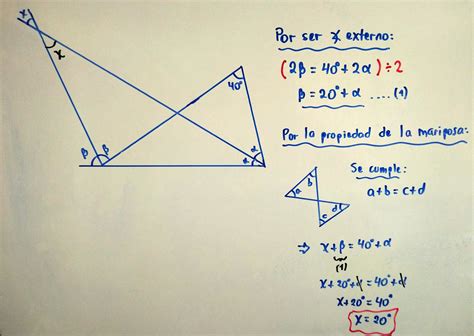 x
x
40°
β
β
α
α
Por ser ∡ externo:
(2β = 40° + 2α) ÷ 2
β = 20° + α .... (1)
Por la propiedad de la mariposa:
Se cumple:
a + b = c + d
a
b
c
d
⇒ x + β = 40° + α
(1)
x + 20° + α = 40° + α
x + 20° = 40°
x = 20°